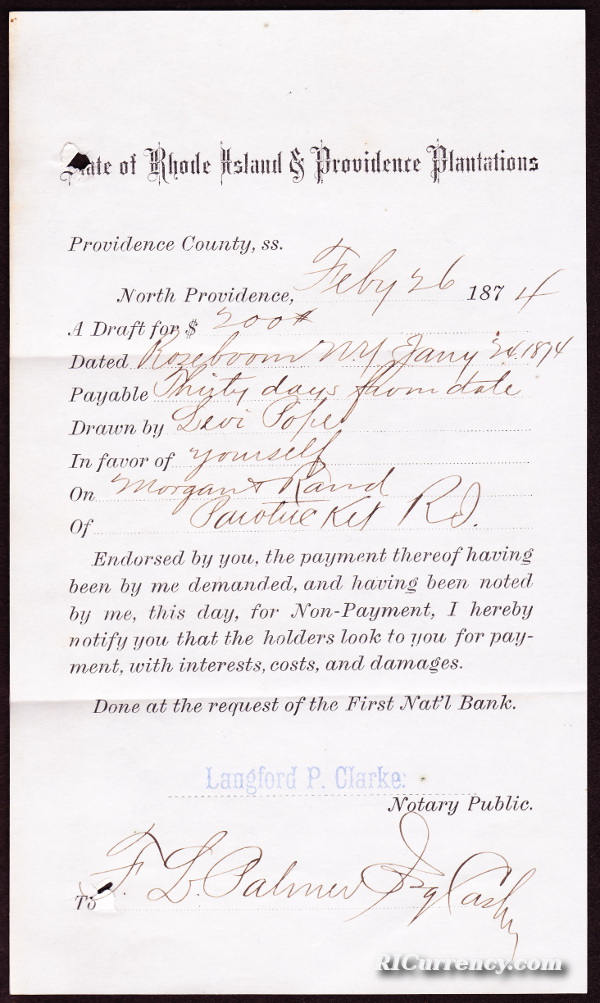 State of Rhode Island & Providence Plantations
Providence County, ss.
North Providence, Feby 26 1874
A Draft for $ 200#
Dated Roseboom N.Y. Jany 24 1874
Payable Thirty days from date
Drawn by Levi Pope
In favor of yourself
On Morgan & Rand
Of Pawtucket RI.
Endorsed by you, the payment thereof having
been by me demanded, and having been noted
by me, this day, for Non-Payment, I hereby
notify you that the holders look to you for pay-
ment, with interests, costs, and damages.
Done at the request of the First Nat'l Bank.
Langford P. Clarke.
Notary Public.
To F. L. Palmer Esq Cash
RICurrency.com